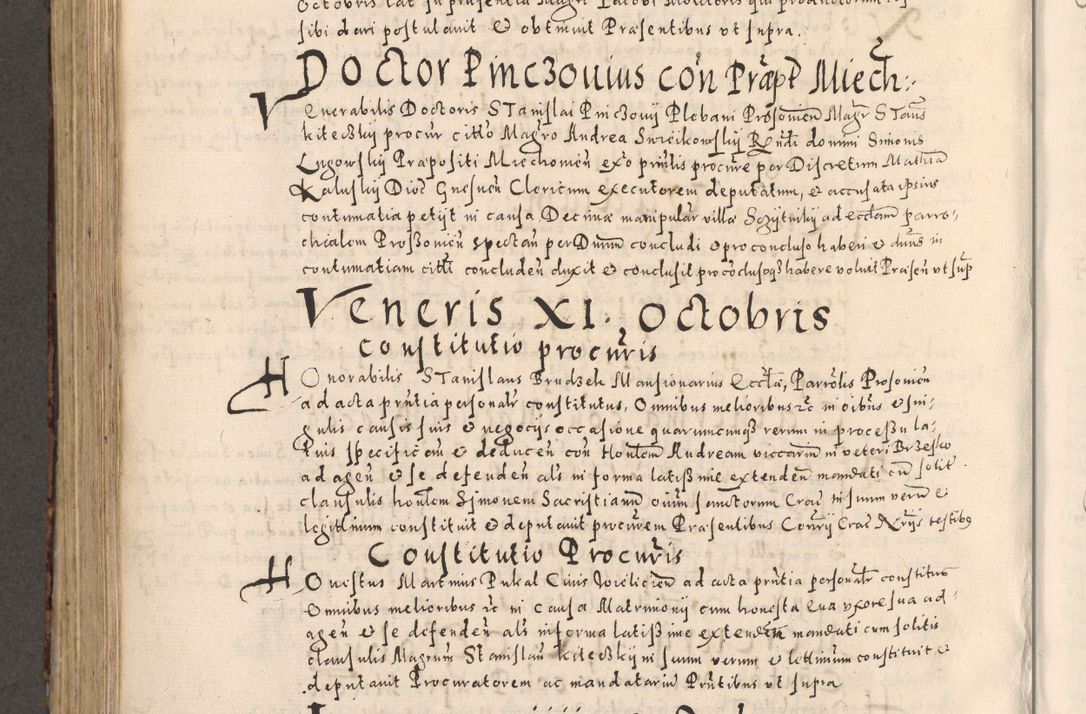 sibi dari postulavit et obtinuit Præsentibus ut supra.
Doctor Pinczovius con Præpt Miech:
Venerabilis Doctoris Stanislai Pinczovij Plebani Prosoviens Magr Stanis
kitelskij procur citto Magro Andrea Swiecikowskij Rndi domini Simonis
Lugowskij Præpositi Miechovien ex opnulis procure per Discretum Mathia
Kaluskij Dioc Gnesnen Clericum executorem deputatum, et accusata ipsius
contumatia petijt in causa Decimæ manipular villæ ad ecclam parro-
chialem Prossovien spectan per Dnum concludi et pro concluso haberi et dnus in
contumatiam citti concluden duxit et conclusit pro conclusoq3 habere voluit Præsen ut sup
Veneris XI. Octobris
Constitutio procuris
Honorabilis Stanislaus Brudzek Mansionarius Eccliæ Parrolis Prosovien
ad acta prntia personalr constitutus, Omnibus melioribus rc in oibus et sin-
gulis causis suis et negocijs occasione quarumcunq3 rerum in processu la-
tius specifican et deducen con Honlem Andream viccarium in veteri Brzesko
ad agen et se defenden als in forma latissime extenden mandati cu solit
clausulis honlem Simonem Sacristianu oium sanctorum Crac in suum veru et
legitimum constituit et deputavit procurem Præsentibus Conrij Crac Nrijs testibus
Constitutio Procuris
Honestus Martinus Pukal Civis ad acta prntia personalr constitus
Omnibus melioribus rc in causa Matrimonij cum honesta Eva uxore sua ad
agen et se defenden als in forma latissime extenden mandati cum solitis
clausulis Magrum Stanislau kitelskij in suum verum et letimum constituit et
deputavit Procuratorem ac mandatariu Prntibus ut supra